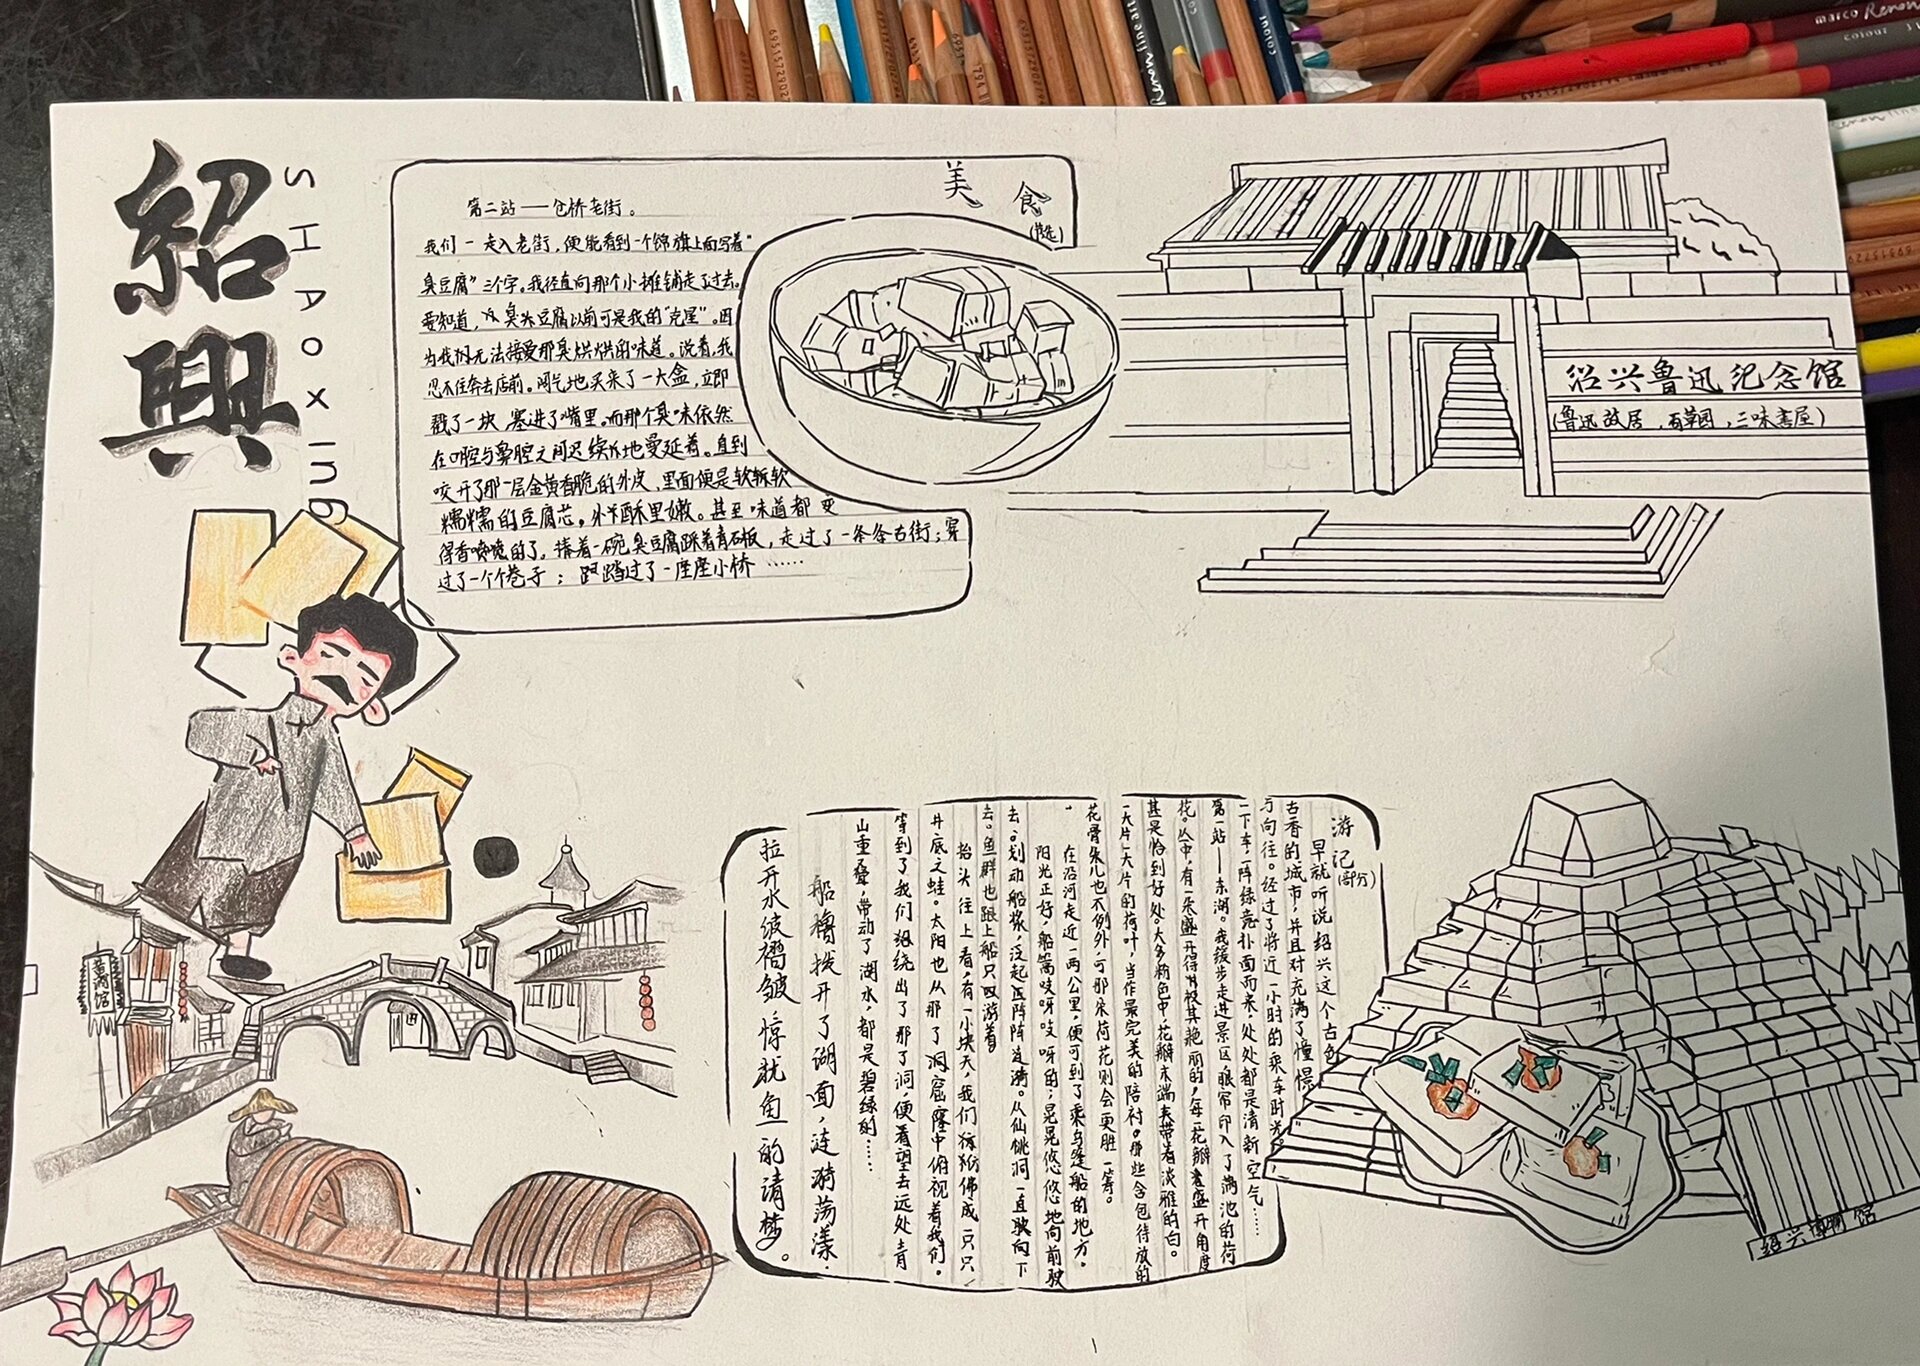 紹興
SHAOXING
美食
(精选)
第二站——仓桥老街。
我们一走入老街，便能看到一个锦旗上面写着“
臭豆腐”三个字。我径直向那个小摊铺走了过去。
要知道，臭豆腐以前可是我的“克星”。因
为我无法接受那臭烘烘的味道。说着，我
忍不住奔去店前。阔气地买来了一大盒，立即
戳了一块，塞进了嘴里。而那个臭味依然
在口腔与鼻腔之间迟续地曼延着。直到
咬开了那一层金黄香脆的外皮，里面便是软软
糯糯的豆腐芯。外酥里嫩。甚至味道都变
得香喷喷的了。捧着一碗臭豆腐踩着青石板，走过了一条条古街；穿
过了一个个巷子；踏过了一座座小桥……
绍兴鲁迅纪念馆
(鲁迅故居，百草园，三味書屋)
游记
(部分)
早就听说绍兴这个古色
古香的城市，并且对充满了憧憬
与向往。经过了将近一小时的乘车时光。
一下车，一阵绿意扑面而来，处处都是清新空气……
第一站——东湖。我缓步走进景区眼帘印入了满池的荷
花。丛中，有一朵盛开得极其艳丽的，每一花瓣盛开角度
甚是恰到好处。大多粉色中，花瓣末端夹带着淡雅的白。
一大片一大片的荷叶，当作最完美的陪衬。那些含包待放的
花骨朵儿也不例外，可那朵荷花则会更胜一筹。
在沿河走近一两公里，便可到了乘乌篷船的地方。
阳光正好，船篙吱呀吱呀的，晃晃悠悠地向前驶
去。划动船桨，泛起阵阵涟漪。从仙桃洞一直驶向下
去。鱼群也跟上船只游着
抬头往上看，有一小块天，我们仿佛成一只只
井底之蛙。太阳也从那了洞窟窿中俯视着我们。
等到了我们组绕出了那了洞，便看望去远处青
山重叠，带动了湖水，都是碧绿的……
船橹拨开了湖面，连漪荡漾.
拉开水波褶皱惊扰鱼的清梦。
黄酒馆
绍兴博物馆